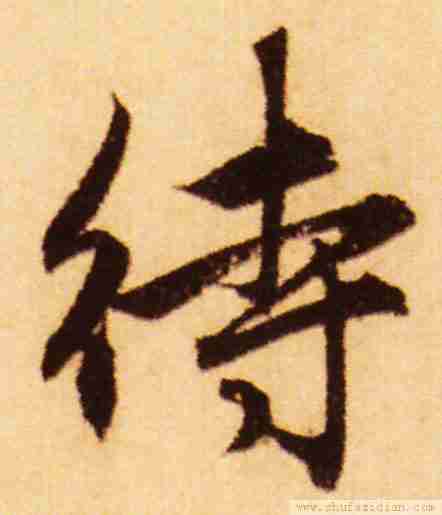 待
www.shufazidian.com